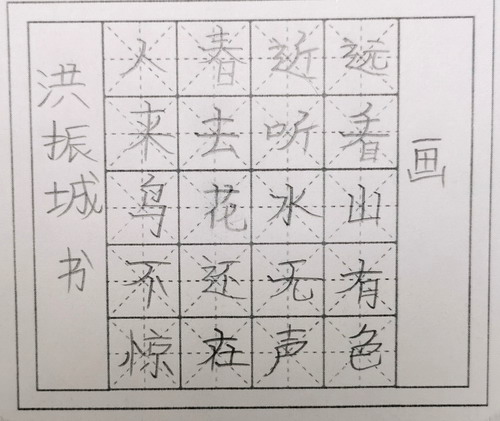 画
远看山有色
近听水无声
春去花还在
人来鸟不惊
洪振城书